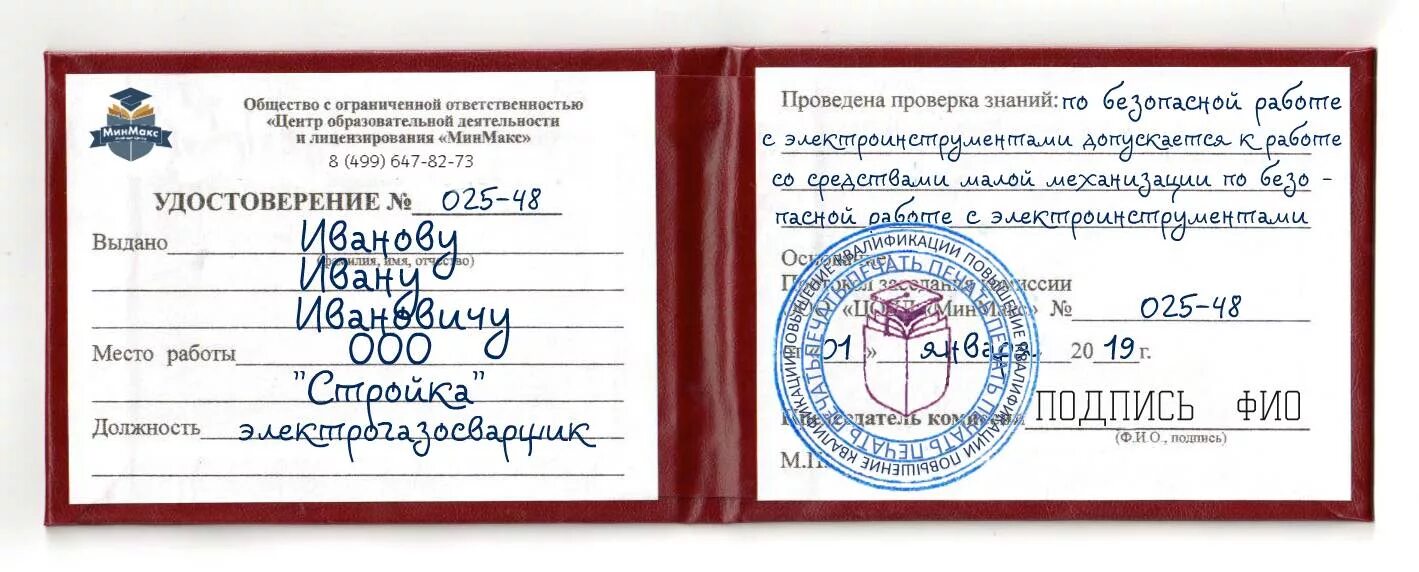 МинМакс
Общество с ограниченной ответственностью
«Центр образовательной деятельности
и лицензирования «МинМакс»
8 (499) 647-82-73
УДОСТОВЕРЕНИЕ № 025-48
Выдано Иванову
(фамилия, имя, отчество)
Ивану
Ивановичу
Место работы ООО
"Стройка"
Должность электрогазосварщик
Проведена проверка знаний: по безопасной работе
с электроинструментами допускается к работе
со средствами малой механизации по безо -
пасной работе с электроинструментами
Основание:
Протокол заседания комиссии
«ЦОДЛ «МинМакс» № 025-48
« 01 » января 20 19 г.
Председатель комиссии ПОДПИСЬ ФИО
(Ф.И.О., подпись)
М.П.
ПОВЫШЕНИЕ КВАЛИФИКАЦИИ ПОВЫШЕНИЕ КВАЛИФИКАЦИИ ПОВЫШЕНИЕ КВАЛИФИКАЦИИ
ПЕЧАТЬ ПЕЧАТЬ ПЕЧАТЬ ПЕЧАТЬ ПЕЧАТЬ ПЕЧАТЬ